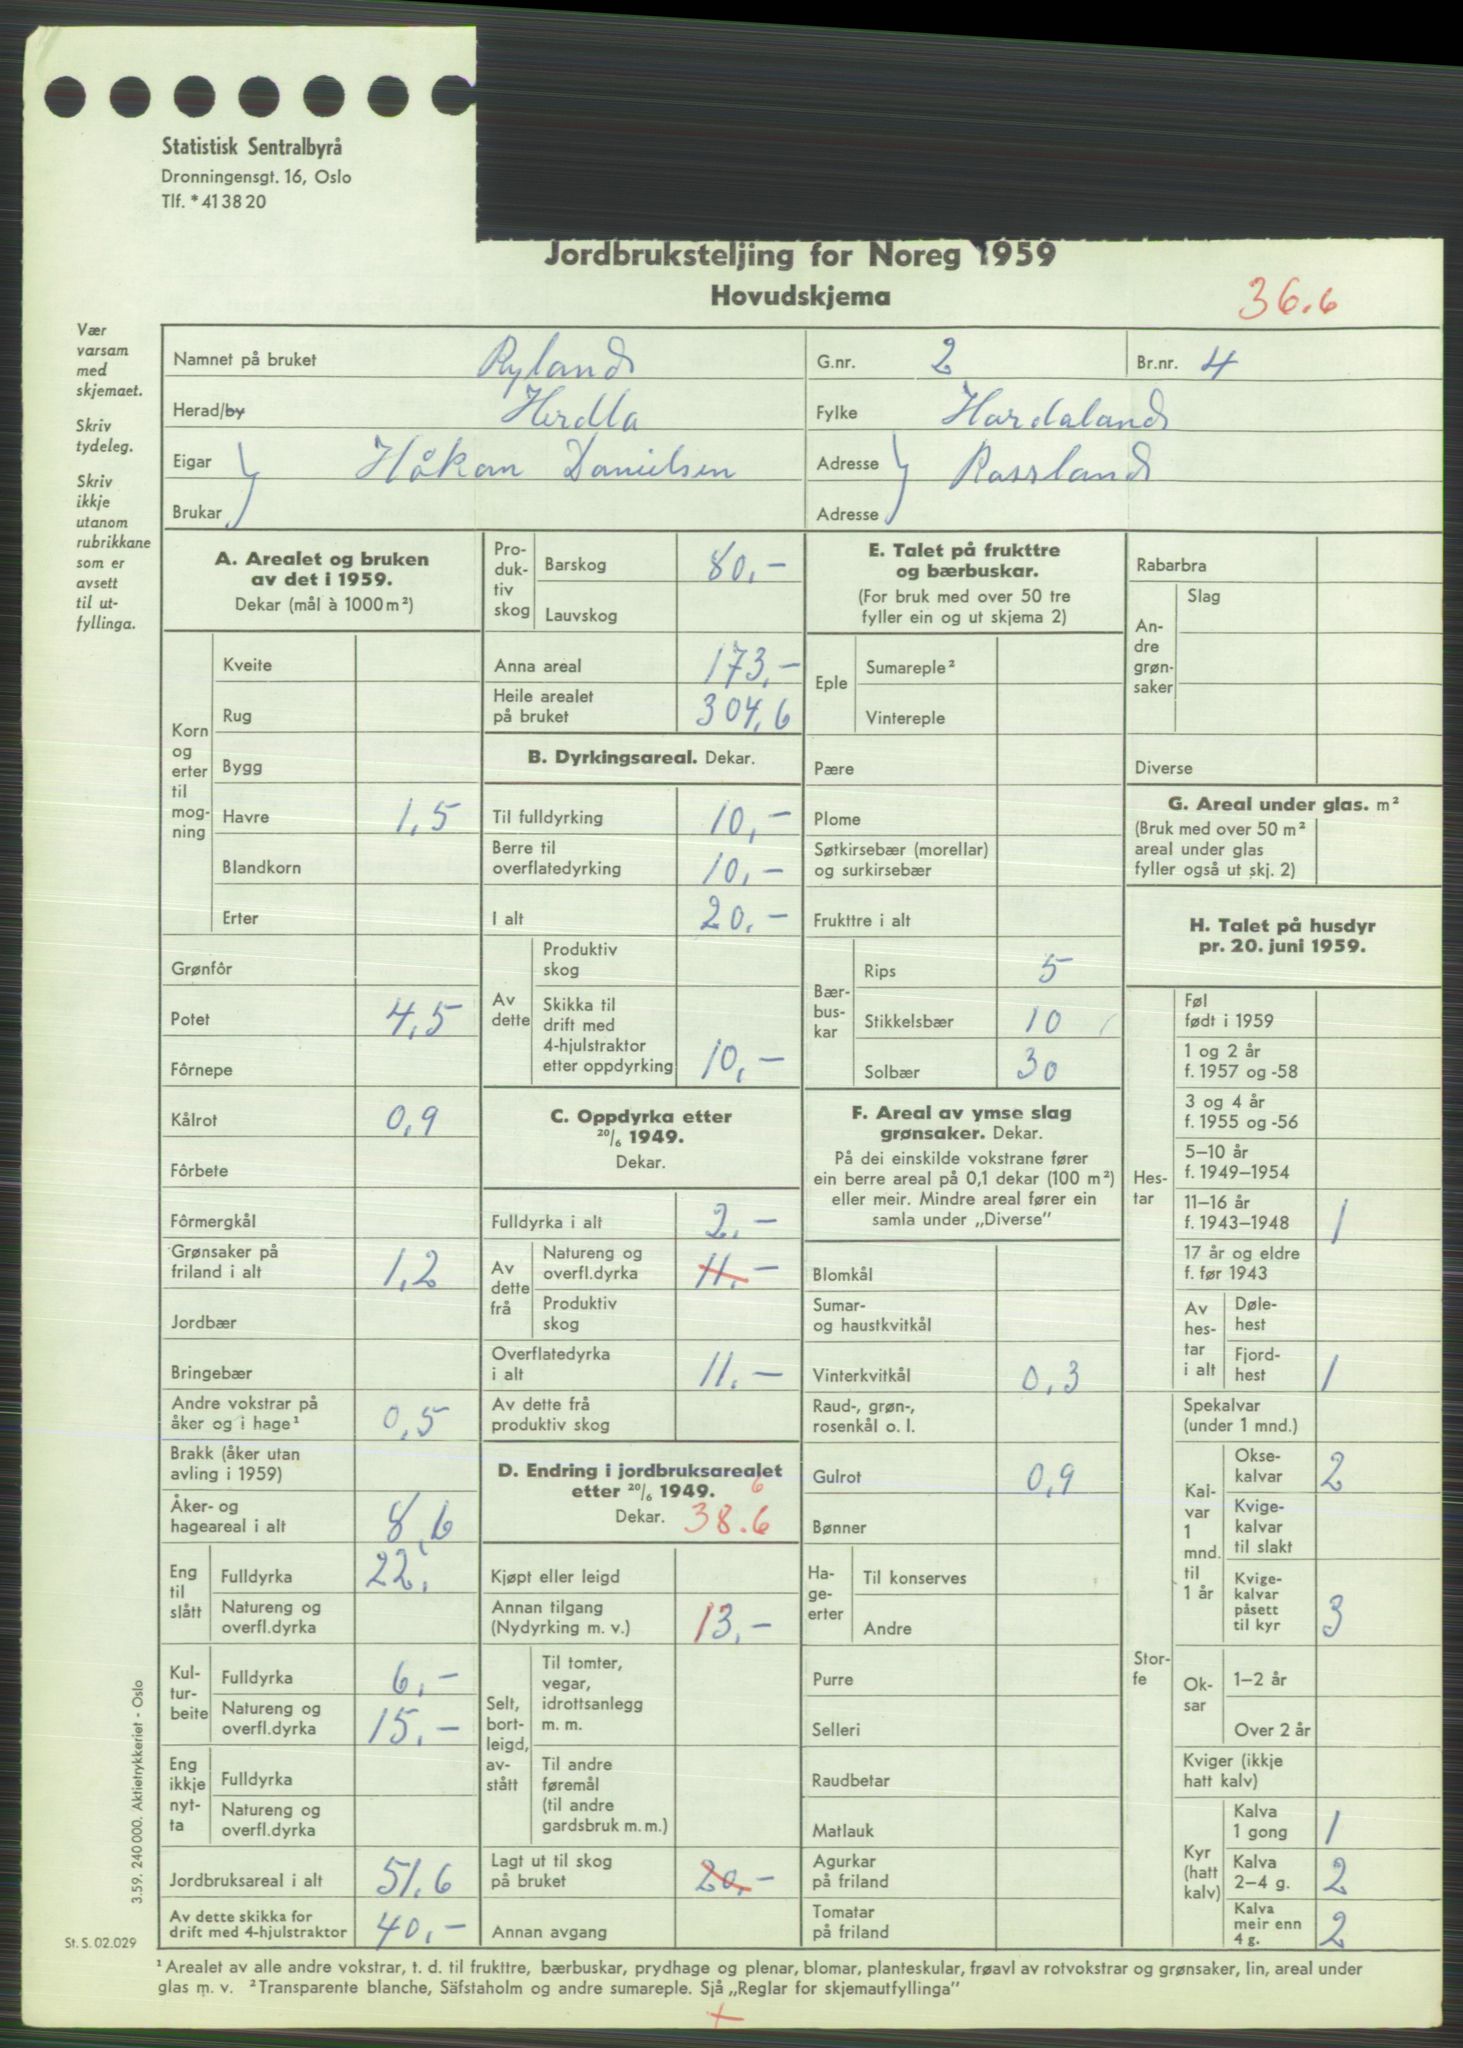 Statistisk Sentralbyrå
Dronningensgt. 16, Oslo
Tlf. *41 38 20
Jordbruksteljing for Noreg 1959
Hovudskjema
36.6
Vær
varsam
med
skjemaet.
Skriv
tydeleg.
Skriv
ikkje
utanom
rubrikkane
som er
avsett
til ut-
fyllinga.
Namnet på bruket Ryland G.nr. 2 Br.nr. 4
Herad/by Herdla Fylke Hordaland
Eigar Håkon Danielsen Adresse Rossland
Brukar Adresse
A. Arealet og bruken
av det i 1959.
Dekar (mål à 1000 m²)
Korn
og
erter
til
mog-
ning
Kveite
Rug
Bygg
Havre 1,5
Blandkorn
Erter
Grønfôr
Potet 4,5
Fôrnepe
Kålrot 0,9
Fôrbete
Fôrmergkål
Grønsaker på
friland i alt 1,2
Jordbær
Bringebær
Andre vokstrar på
åker og i hage¹ 0,5
Brakk (åker utan
avling i 1959)
Åker- og
hageareal i alt 8,6
Eng
til
slått
Fulldyrka 22,
Natureng og
overfl.dyrka
Kul-
tur-
beite
Fulldyrka 6,-
Natureng og
overfl.dyrka 15,-
Eng
ikkje
nyt-
ta
Fulldyrka
Natureng og
overfl.dyrka
Jordbruksareal i alt 51,6
Av dette skikka for
drift med 4-hjulstraktor 40,-
Pro-
duk-
tiv
skog
Barskog 80,-
Lauvskog
Anna areal 173,-
Heile arealet
på bruket 304,6
B. Dyrkingsareal. Dekar.
Til fulldyrking 10,-
Berre til
overflatedyrking 10,-
I alt 20,-
Av
dette
Produktiv
skog
Skikka til
drift med
4-hjulstraktor
etter oppdyrking 10,-
C. Oppdyrka etter
20/6 1949.
Dekar.
Fulldyrka i alt 2,-
Av
dette
frå
Natureng og
overfl.dyrka 11,-
Produktiv
skog
Overflatedyrka
i alt 11,-
Av dette frå
produktiv skog
D. Endring i jordbruksarealet
etter 20/6 1949. 6
Dekar. 38.6
Kjøpt eller leigd
Annan tilgang
(Nydyrking m. v.) 13,-
Selt,
bort-
leigd,
av-
stått
Til tomter,
vegar,
idrottsanlegg
m. m.
Til andre
føremål
(til andre
gardsbruk m. m.)
Lagt ut til skog
på bruket 20,-
Annan avgang
E. Talet på frukttre
og bærbuskar.
(For bruk med over 50 tre
fyller ein og ut skjema 2)
Eple
Sumareple²
Vintereple
Pære
Plome
Søtkirsebær (morellar)
og surkirsebær
Frukttre i alt
Bær-
bus-
kar
Rips 5
Stikkelsbær 10
Solbær 30
F. Areal av ymse slag
grønsaker. Dekar.
På dei einskilde vokstrane fører
ein berre areal på 0,1 dekar (100 m²)
eller meir. Mindre areal fører ein
samla under „Diverse”
Blomkål
Sumar-
og haustkvitkål
Vinterkvitkål 0,3
Raud-, grøn-,
rosenkål o. l.
Gulrot 0,9
Bønner
Ha-
ge-
erter
Til konserves
Andre
Purre
Selleri
Raudbetar
Matlauk
Agurkar
på friland
Tomatar
på friland
Rabarbra
An-
dre
grøn-
saker
Slag
Diverse
G. Areal under glas. m²
(Bruk med over 50 m²
areal under glas
fyller også ut skj. 2)
H. Talet på husdyr
pr. 20. juni 1959.
Hes-
tar
Føl
født i 1959
1 og 2 år
f. 1957 og -58
3 og 4 år
f. 1955 og -56
5–10 år
f. 1949–1954
11–16 år
f. 1943–1948 1
17 år og eldre
f. før 1943
Av
hes-
tar
i alt
Døle-
hest
Fjord-
hest 1
Stor-
fe
Spekalvar
(under 1 mnd.)
Kal-
var
1
mnd.
til
1 år
Okse-
kalvar 2
Kvige-
kalvar
til slakt
Kvige-
kalvar
påsett
til kyr 3
Ok-
sar
1–2 år
Over 2 år
Kviger (ikkje
hatt kalv)
Kyr
(hatt
kalv)
Kalva
1 gong 1
Kalva
2–4 g. 2
Kalva
meir enn
4 g. 2
3.59. 240 000. Aktietrykkeriet - Oslo
St. S. 02.029
¹ Arealet av alle andre vokstrar, t. d. til frukttre, bærbuskar, prydhage og plenar, blomar, planteskular, frøavl av rotvokstrar og grønsaker, lin, areal under
glas m. v. ² Transparente blanche, Säfstaholm og andre sumareple. Sjå „Reglar for skjemautfyllinga”